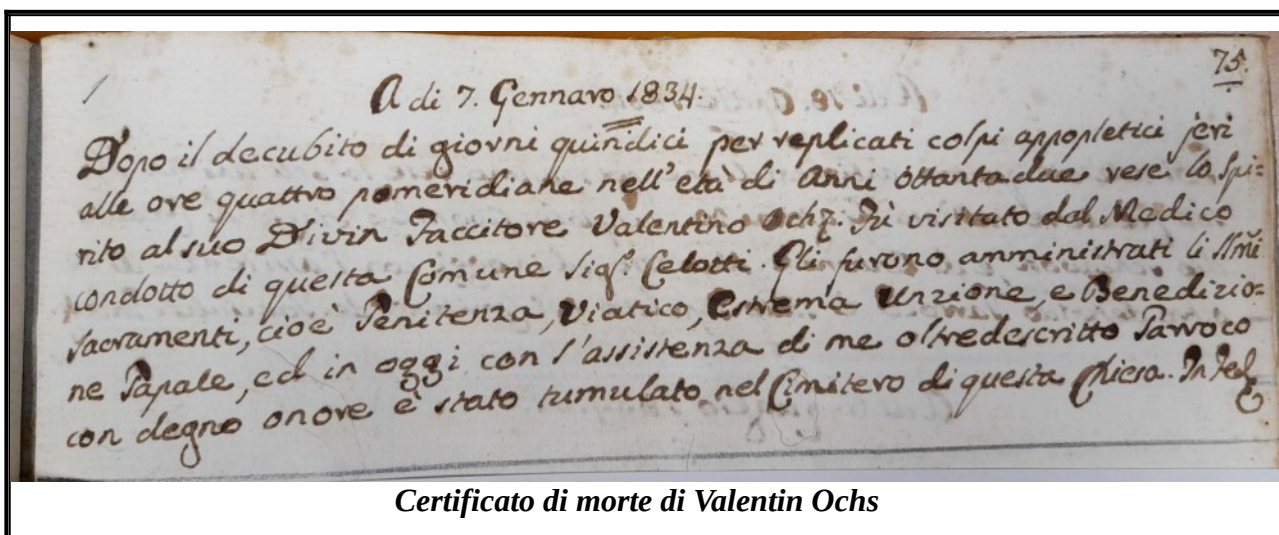 1
75.
A di 7. Gennaro 1834.
Dopo il decubito di giorni quindici per replicati colpi appopletici jeri
alle ore quattro pomeridiane nell'età di Anni ottantadue rese lo Spi=
rito al suo Divin Faccitore Valentino Ochz. Fù visitato dal Medico
condotto di questa Comune Sigr. Celotti. Gli furono amministrati li SSmi
Sacramenti, cioè Penitenza, Viatico, Estrema Unzione, e Benedizio=
ne Papale, ed in oggi con l'assistenza di me oltredescritto Parroco
con degno onore è stato tumulato nel Cimitero di questa Chiesa. In
Certificato di morte di Valentin Ochs